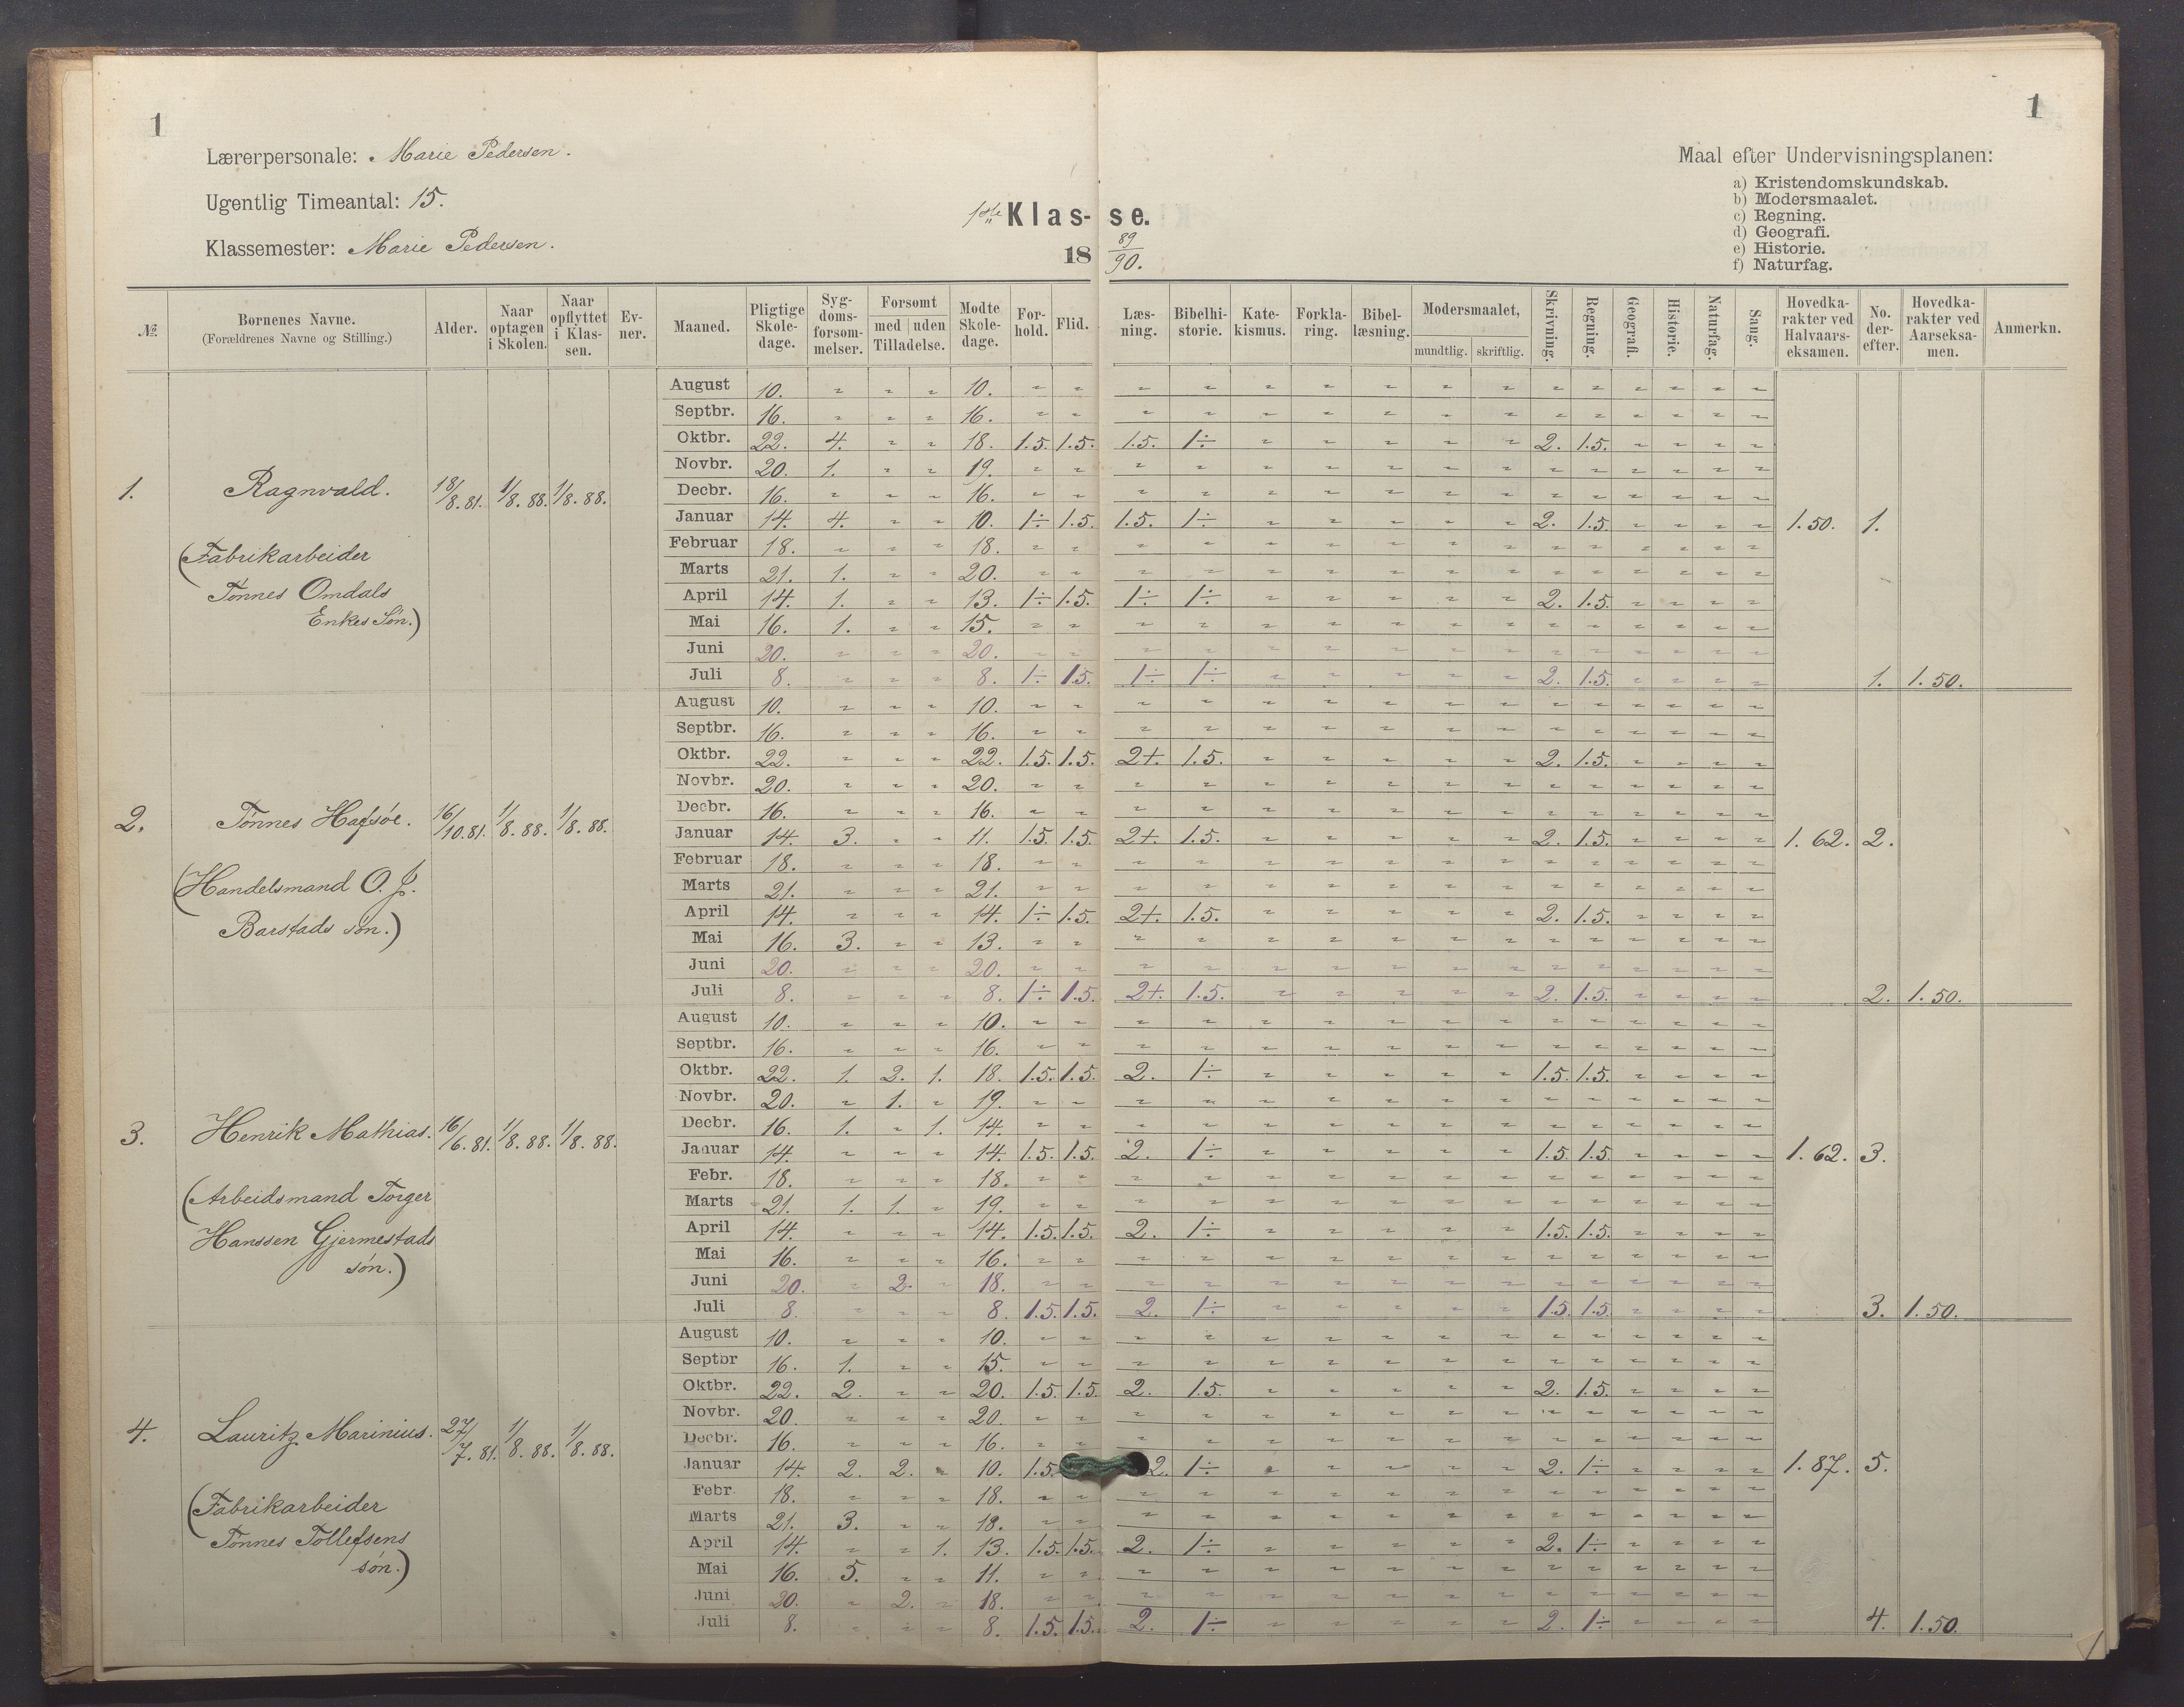 1
1
Lærerpersonale: Marie Pedersen.
Ugentlig Timeantal: 15.
Klassemester: Marie Pedersen.
1ste Klas- se.
18 89/90.
Maal efter Undervisningsplanen:
a) Kristendomskundskab.
b) Modersmaalet.
c) Regning.
d) Geografi.
e) Historie.
f) Naturfag.
№ Børnenes Navne. (Forældrenes Navne og Stilling.) Alder. Naar optagen i Skolen. Naar opflyttet i Klassen. Ev- ner. Maaned. Pligtige Skole- dage. Syg- doms- forsøm- melser. Forsømt med uden Tilladelse. Mødte Skole- dage. For- hold. Flid. Læs- ning. Bibelhi- storie. Kate- kismus. Forkla- ring. Bibel- læsning. Modersmaalet, mundtlig. skriftlig. Skrivning. Regning. Geografi. Historie. Naturfag. Sang. Hovedka- rakter ved Halvaars- eksamen. No. der- efter. Hovedka- rakter ved Aarseksa- men. Anmerkn.
1. Ragnvald. 18/8.81. 1/8.88. 1/8.88.
(Fabrikarbeider
Tønnes Omdals
Enkes Søn.)
August 10. " " " 10. " " " " " " " " " " " " " " "
Septbr. 16. " " " 16. " " " " " " " " " " " " " " "
Oktbr. 22. 4. " " 18. 1.5. 1.5. 1.5. 1÷ " " " " " 2. 1.5. " " " "
Novbr. 20. 1. " " 19. " " " " " " " " " " " " " " "
Decbr. 16. " " " 16. " " " " " " " " " " " " " " "
Januar 14. 4. " " 10. 1÷ 1.5. 1.5. 1÷ " " " " " 2. 1.5. " " " " 1.50. 1.
Februar 18. " " " 18. " " " " " " " " " " " " " " "
Marts 21. 1. " " 20. " " " " " " " " " " " " " " "
April 14. 1. " " 13. 1÷ 1.5. 1÷ 1÷ " " " " " 2. 1.5. " " " "
Mai 16. 1. " " 15. " " " " " " " " " " " " " " "
Juni 20. " " " 20. " " " " " " " " " " " " " " "
Juli 8. " " " 8. 1÷ 1.5. 1÷ 1÷ " " " " " 2. 1.5. " " " " 1. 1.50.
2. Tønnes Hafsøe. 16/10.81. 1/8.88. 1/8.88.
(Handelsmand O. J.
Barstads søn.)
August 10. " " " 10. " " " " " " " " " " " " " " "
Septbr. 16. " " " 16. " " " " " " " " " " " " " " "
Oktbr. 22. " " " 22. 1.5. 1.5. 2+. 1.5. " " " " " 2. 1.5. " " " "
Novbr. 20. " " " 20. " " " " " " " " " " " " " " "
Decbr. 16. " " " 16. " " " " " " " " " " " " " " "
Januar 14. 3. " " 11. 1.5. 1.5. 2+. 1.5. " " " " " 2. 1.5. " " " " 1.62. 2.
Februar 18. " " " 18. " " " " " " " " " " " " " " "
Marts 21. " " " 21. " " " " " " " " " " " " " " "
April 14. " " " 14. 1÷ 1.5. 2+. 1.5. " " " " " 2. 1.5. " " " "
Mai 16. 3. " " 13. " " " " " " " " " " " " " " "
Juni 20. " " " 20. " " " " " " " " " " " " " " "
Juli 8. " " " 8. 1÷ 1.5. 2+. 1.5. " " " " " 2. 1.5. " " " " 2. 1.50.
3. Henrik Mathias. 16/6.81. 1/8.88. 1/8.88.
(Arbeidsmand Torger
Hanssen Gjermestads
søn.)
August 10. " " " 10. " " " " " " " " " " " " " " "
Septbr. 16. " " " 16. " " " " " " " " " " " " " " "
Oktbr. 22. 1. 2. 1. 18. 1.5. 1.5. 2. 1÷ " " " " " 1.5. 1.5. " " " "
Novbr. 20. " 1. " 19. " " " " " " " " " " " " " " "
Decbr. 16. 1. " 1. 14. " " " " " " " " " " " " " " "
Januar 14. " " " 14. 1.5. 1.5. 2. 1÷ " " " " " 1.5. 1.5. " " " " 1.62. 3.
Febr. 18. " " " 18. " " " " " " " " " " " " " " "
Marts 21. 1. 1. " 19. " " " " " " " " " " " " " " "
April 14. " " " 14. 1.5. 1.5. 2. 1÷ " " " " " 1.5. 1.5. " " " "
Mai 16. " " " 16. " " " " " " " " " " " " " " "
Juni 20. " 2. " 18. " " " " " " " " " " " " " " "
Juli 8. " " " 8. 1.5. 1.5. 2. 1÷ " " " " " 1.5. 1.5. " " " " 3. 1.50.
4. Lauritz Marinius. 27/7.81. 1/8.88. 1/8.88.
(Fabrikarbeider
Tønnes Tollefsens
søn.)
August 10. " " " 10. " " " " " " " " " " " " " " "
Septbr 16. 1. " " 15. " " " " " " " " " " " " " " "
Oktbr. 22. 2. " " 20. 1.5. 1.5. 2. 1.5. " " " " " 2. 1.5. " " " "
Novbr. 20. " " " 20. " " " " " " " " " " " " " " "
Decbr. 16. " " " 16. " " " " " " " " " " " " " " "
Januar 14. 2. 2. " 10. 1.5. 2. 1÷ " " " " " 2. 1÷ " " " " 1.87. 5.
Febr 18. " " " 18. " " " " " " " " " " " " " " "
Marts 21. 3. " " 18. " " " " " " " " " " " " " " "
April 14. " " 1. 13. 1.5. 1.5. 2. 1÷ " " " " " 2. 1÷ " " " "
Mai 16. 5. " " 11. " " " " " " " " " " " " " " "
Juni 20. " 2. " 18. " " " " " " " " " " " " " " "
Juli 8. " " " 8. 1.5. 1.5. 2. 1÷ " " " " " 2. 1÷ " " " " 4. 1.50.